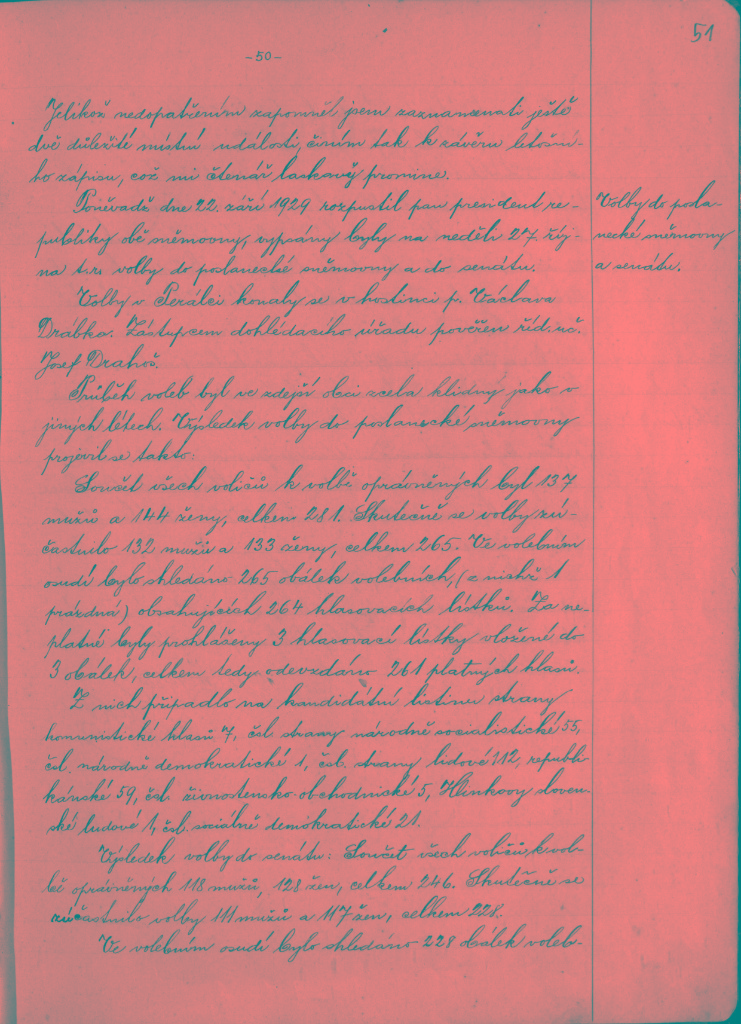 51
-50-
Jelikož nedopatřením zapomněl jsem zaznamenati ještě
dvě důležité místní události, činím tak k závěru letošní-
ho zápisu, což mi čtenář laskavě promine.
Poněvadž dne 22. září 1929 rozpustil pan president re-
publiky obě sněmovny, vypsány byly na neděli 27. říj-
na t.r. volby do poslanecké sněmovny a do senátu.
Volby do posla-
necké sněmovny
a senátu.
Volby v konaly se v hostinci p. Václava
Drábka. Zástupcem dohlédacího úřadu pověřen říd. uč.
Josef Drahoš.
Průběh voleb byl ve zdejší obci zcela klidný jako v
jiných létech. Výsledek volby do poslanecké sněmovny
projevil se takto:
Součet všech voličů k volbě oprávněných byl 137
mužů a 144 ženy, celkem 281. Skutečně se volby zú-
častnilo 132 mužů a 133 ženy, celkem 265. Ve volebním
osudí bylo shledáno 265 obálek volebních, (z nichž 1
prázdná) obsahujících 264 hlasovacích lístků. Za ne-
platné byly prohlášeny 3 hlasovací lístky vložené do
3 obálek, celkem tedy odevzdáno 261 platných hlasů.
Z nich připadlo na kandidátní listinu strany
komunistické hlasů 7, čsl. strany národně socialistické 55,
čsl. národně demokratické 1, čsl. strany lidové 112, republi-
kánské 59, čsl. živnostensko-obchodnické 5, Hlinkovy sloven-
ské ludové 1, čsl. sociálně demokratické 21.
Výsledek volby do senátu: Součet všech voličů k vol-
bě oprávněných 118 mužů, 128 žen, celkem 246. Skutečně se
zúčastnilo volby 111 mužů a 117 žen, celkem 228.
Ve volebním osudí bylo shledáno 228 obálek voleb-